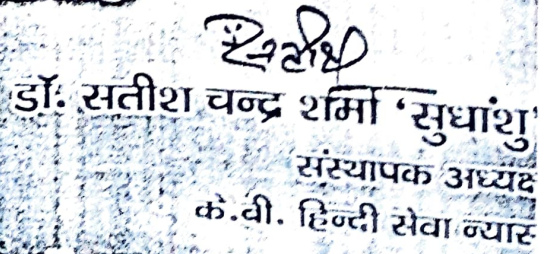 डॉ. सतीश चन्द्र शर्मा 'सुधांशु'
संस्थापक अध्यक्ष
के.वी. हिन्दी सेवा न्यास